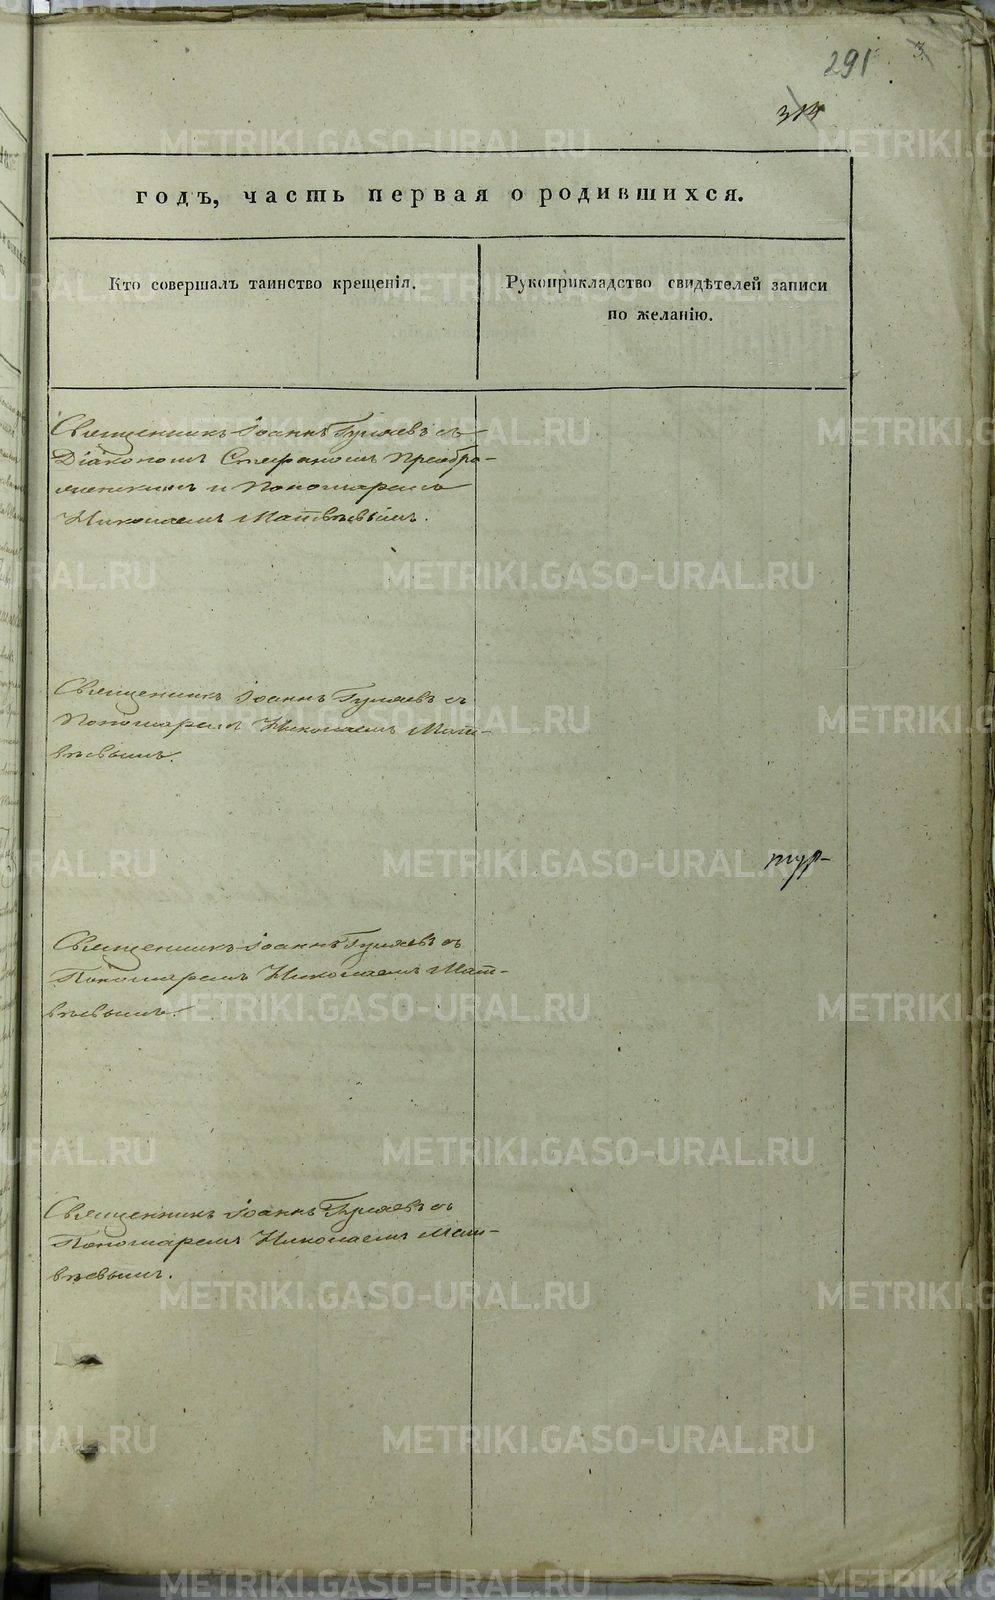 291
3
314
годъ, часть первая о родившихся.
Кто совершалъ таинство крещенія.
Рукоприкладство свидѣтелей записи
по желанію.
Священникъ Іоаннъ Гуляевъ съ
Діакономъ Стефаномъ Преобра-
женскимъ и Пономаремъ
Николаемъ Матвѣевымъ.
Священникъ Іоаннъ Гуляевъ съ
Пономаремъ Николаемъ Мат-
вѣевымъ.
Священникъ Іоаннъ Гуляевъ съ
Пономаремъ Николаемъ Мат-
вѣевымъ.
Священникъ Іоаннъ Гуляевъ съ
Пономаремъ Николаемъ Мат-
вѣевымъ.
METRIKI.GASO-URAL.RU